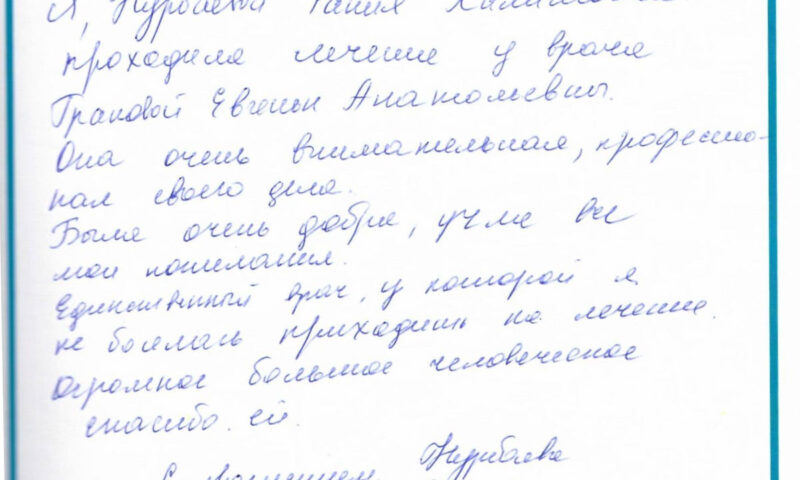 Я, Нурбаева Галия Халитовна
проходила лечение у врача
Граковой Евгении Анатольевны.
Она очень внимательная, профессио-
нал своего дела.
Была очень добра, учла все
мои пожелания.
Единственный врач, у которой я
не боялась приходить на лечение.
Огромное большое человеческое
спасибо ей.
С уважением Нурбаева